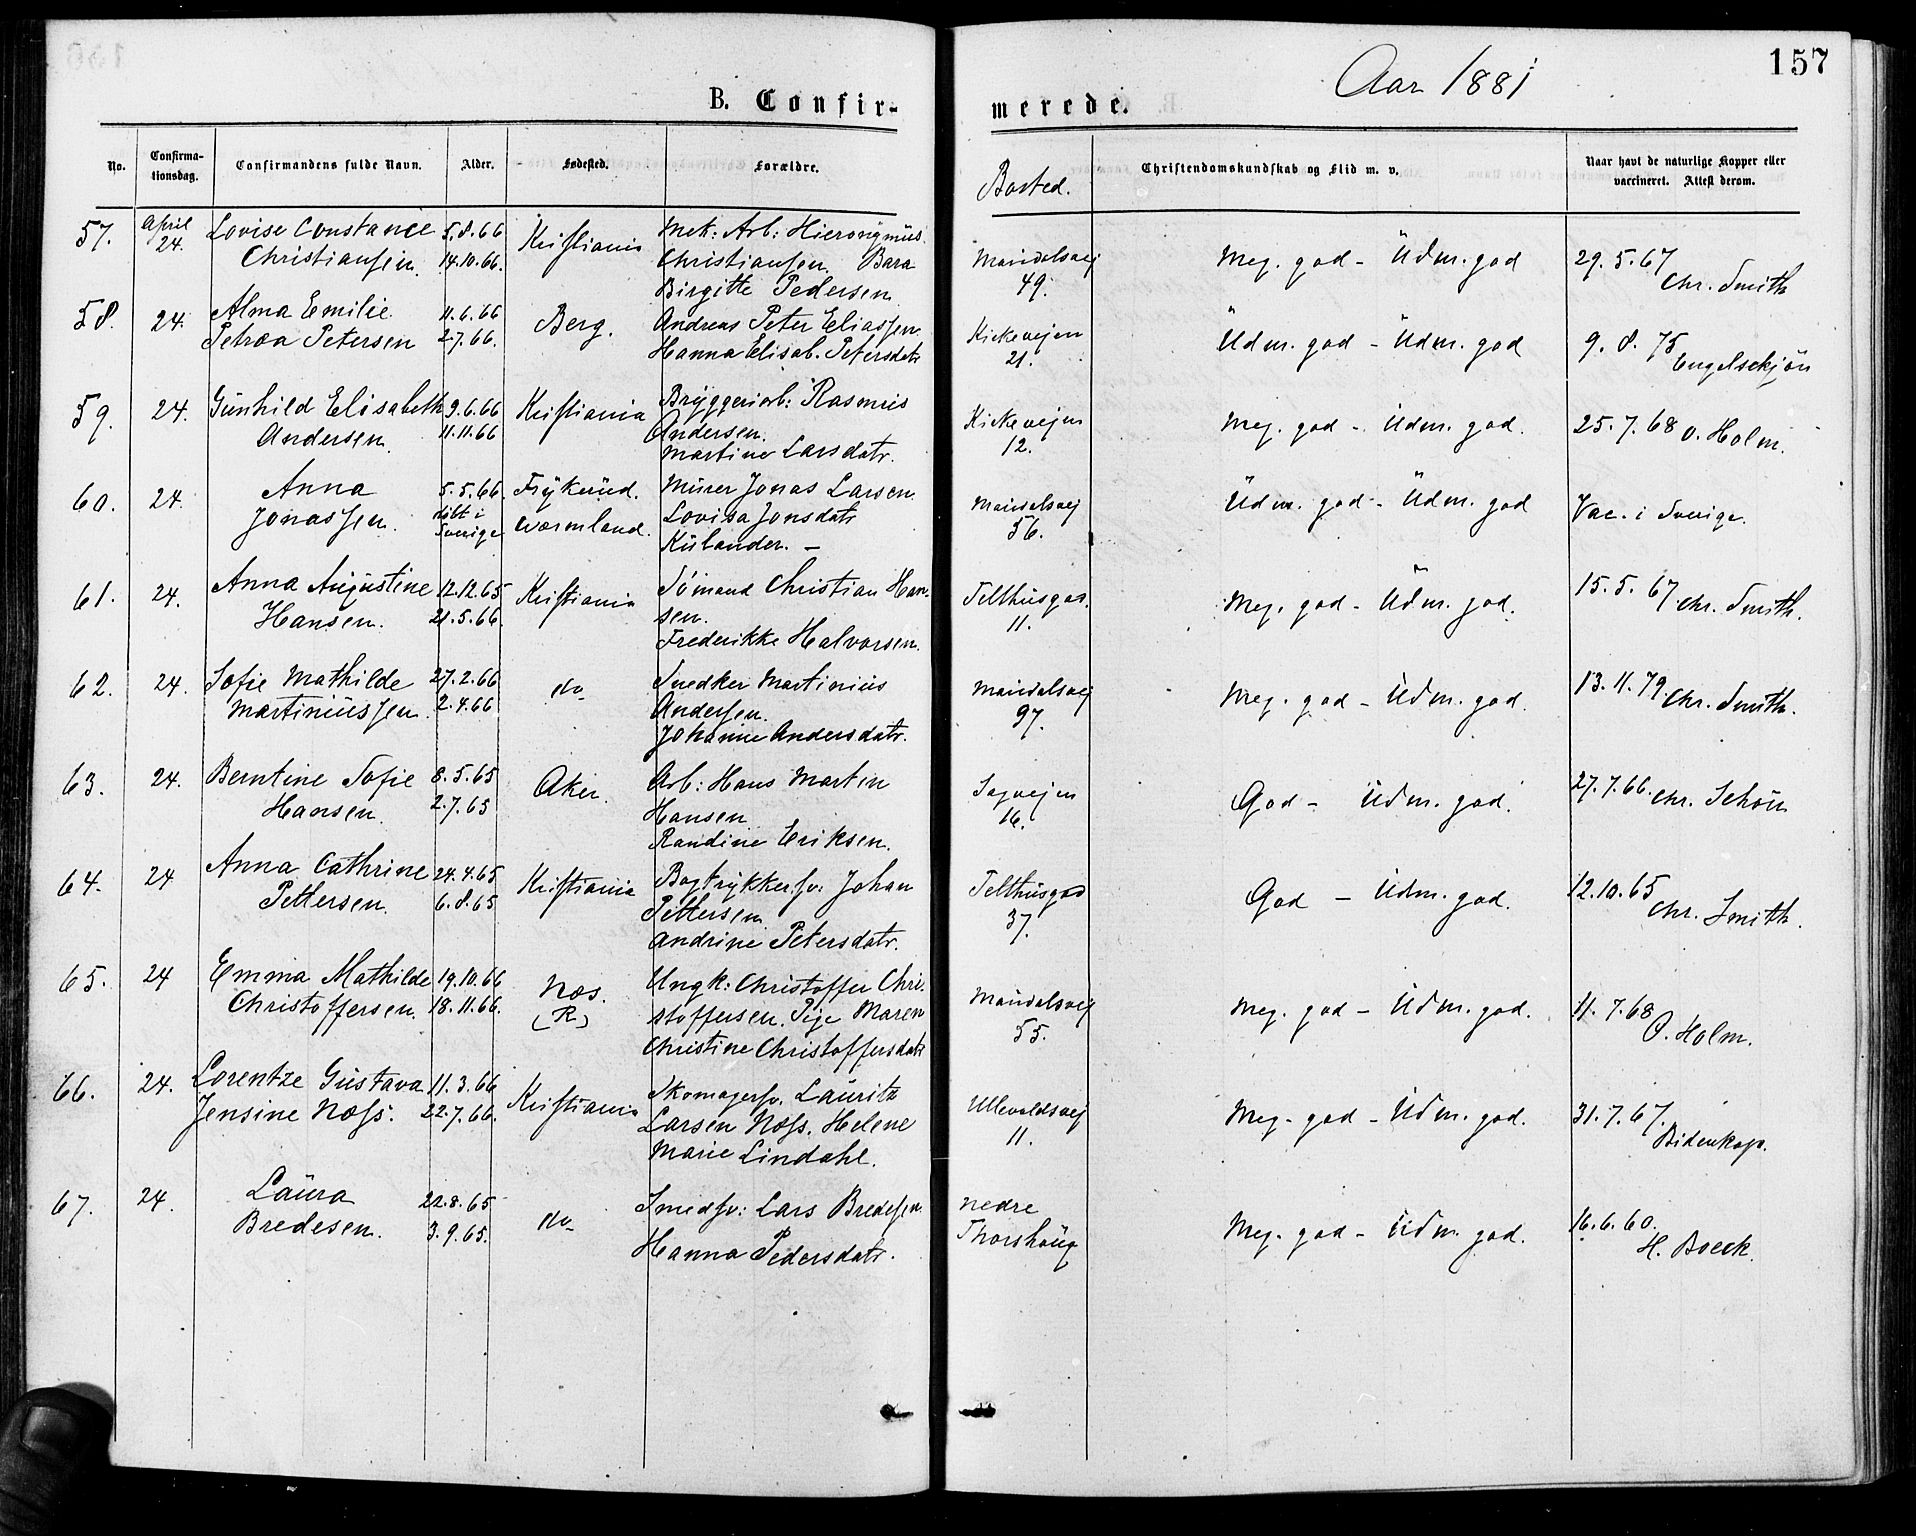 157
Aar 1881
B. Confir-
merede.
No.
Confirma-
tionsdag.
Confirmandens fulde Navn.
Alder.
Fødested.
Forældre.
Bosted.
Christendomskundskab og Flid m. v.
Naar havt de naturlige Kopper eller
vaccineret. Attest derom.
57. April 24. Lovise Constance 5.8.66 Kristiania Mek: Arb: Hieronymus
Christiansen. 14.10.66. Christiansen. Bara
Birgitte Pedersen
Maridalsvej 49. Meg. god - Udm. god 29.5.67 Chr. Smith
58. 24. Alma Emilie 11.6.66 Berg. Andreas Peter Eliassen
Petrea Petersen 2.7.66. Hanna Elisab. Petersdatr
Kirkevejen 21. Udm. god - Udm. god 9.8.75 Engelschjön
59. 24. Gunhild Elisabeth 9.6.66 Kristiania Bryggeriarb: Rasmus
Andersen. 11.11.66 Andersen.
Martine Larsdatr.
Kirkevejen 12. Meg. god - Udm. god. 25.7.68 O. Holm.
60. 24. Anna 5.5.66. Frykerud. Murer Jonas Larsen
Jonassen. døbt i Wærmland. Lovisa Jonsdatr
Sverige Kulander. -
Maridalsvej 56. Udm. god - Udm. god Vac. i Sverige.
61. 24. Anna Augustine 12.12.65 Kristiania Sømand Christian Han-
Hansen. 21.5.66. sen.
Frederikke Halvorsen.
Telthusgad. 11. Meg. god - Udm. god. 15.5.67 Chr. Smith.
62. 24. Sofie Mathilde 27.2.66 do Snedker Martinius
Martiniussen. 2.4.66 Andersen.
Johanne Andersdatr.
Maridalsvej 97. Meg. god - Udm. god. 13.11.79. Chr. Smith.
63. 24. Berntine Sofie 8.5.65 Aker. Arb: Hans Martin
Hansen. 2.7.65 Hansen
Randine Eriksen.
Sagvejen 16. God - Udm. god. 27.7.66. Chr. Schön
64. 24 Anna Cathrine 24.4.65 Kristiania Bogtrykkersv: Johan
Pettersen. 6.8.65 Pettersen.
Andrine Petersdatr.
Telthusgad 37. God - Udm. god. 12.10.65 Chr. Smith.
65. 24 Emma Mathilde 19.10.66 Næs. Ungk: Christoffer Chri-
Christoffersen. 18.11.66. (R) stoffersen. Pige Maren
Christine Christoffersdatr
Maridalsvej 55. Meg. god - Udm. god. 11.7.68 O. Holm.
66. 24. Lorentze Gustava 11.3.66 Kristiania Skomagersv. Lauritz
Jensine Næss. 22.7.66. Larsen Næss. Helene
Marie Lindahl.
Ullevoldsvej 11. Meg. god - Udm. god. 31.7.67. Bidenkap.
67. 24. Laura 22.8.65 do Smedsv: Lars Bredesen
Bredesen. 3.9.65. Hanna Pedersdatr.
Nedre
Thorshaug Meg. god - Udm. god. 16.6.60. H. Boeck.